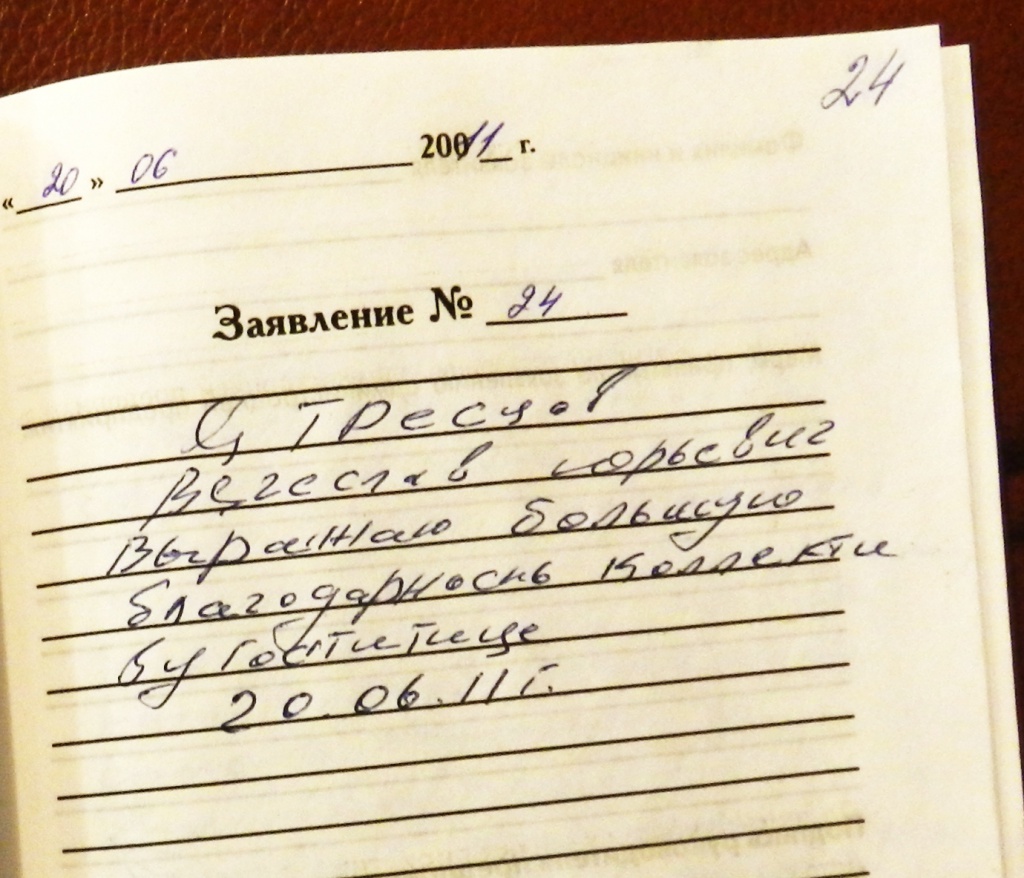 24
« 20 » 06 20011 г.
Заявление № 24
Я Тресцов
Вячеслав юрьевич
Выражаю большую
благодарность коллекти
ву гостинице
20.06.11г.